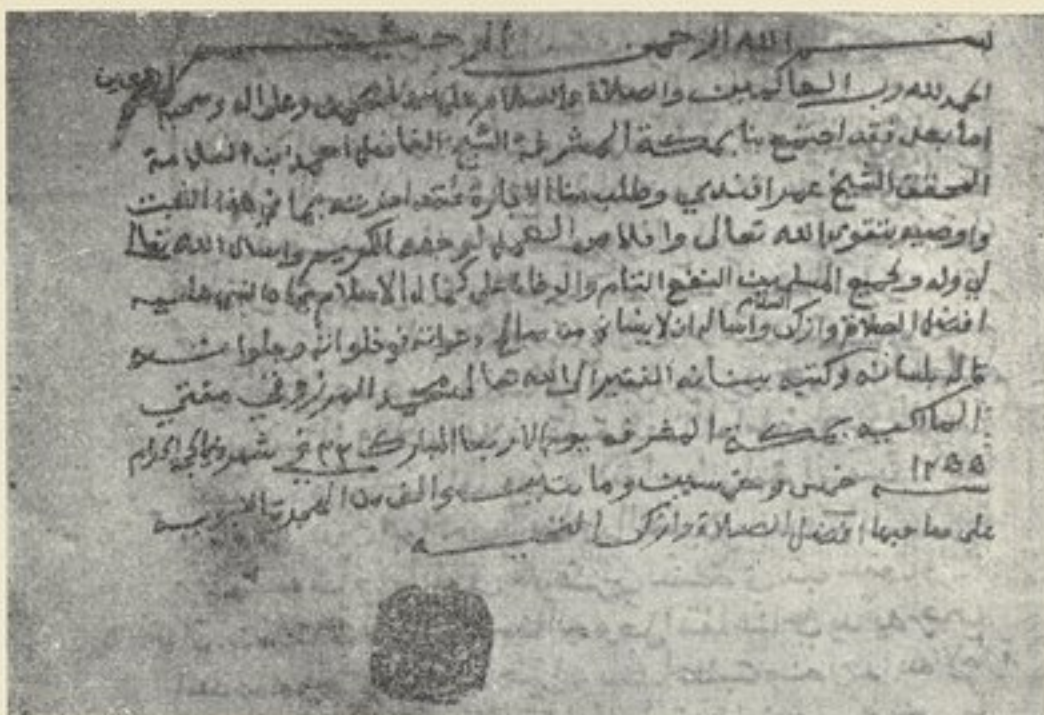 بسم الله الرحمن الرحيم
الحمد لله رب العالمين والصلاة والسلام على سيد المرسلين وعلى اله وصحبه اجمعين
اما بعد فقد اجتمع بنا بمكة المشرفة الشيخ الفاضل احمد ابن العلامة
المحقق الشيخ عمر افندي وطلب منا الاجازة فقد اجزته بما في هذا الثبت
واوصيه بتقوى الله تعالى واخلاص العمل لوجهه الكريم واسال الله تعالى
لي وله ولجميع المسلمين النفع التام والوفاة على كمال الاسلام بجاه النبي عليه
افضل الصلاة وازكى السلام واساله ان لا ينساني من صالح دعواته في خلواته وجلواته
قاله بلسانه وكتبه ببنانه الفقير الى الله محمد المرزوقي مفتي
المالكيه بمكة المشرفة يوم الاربعا المبارك ٢٣ في شهر الحرام
سنة ١٢٥٥ خمس وخمسين ومايتين والف من الهجرة النبويه
على صاحبها افضل الصلاة وازكى التحيه